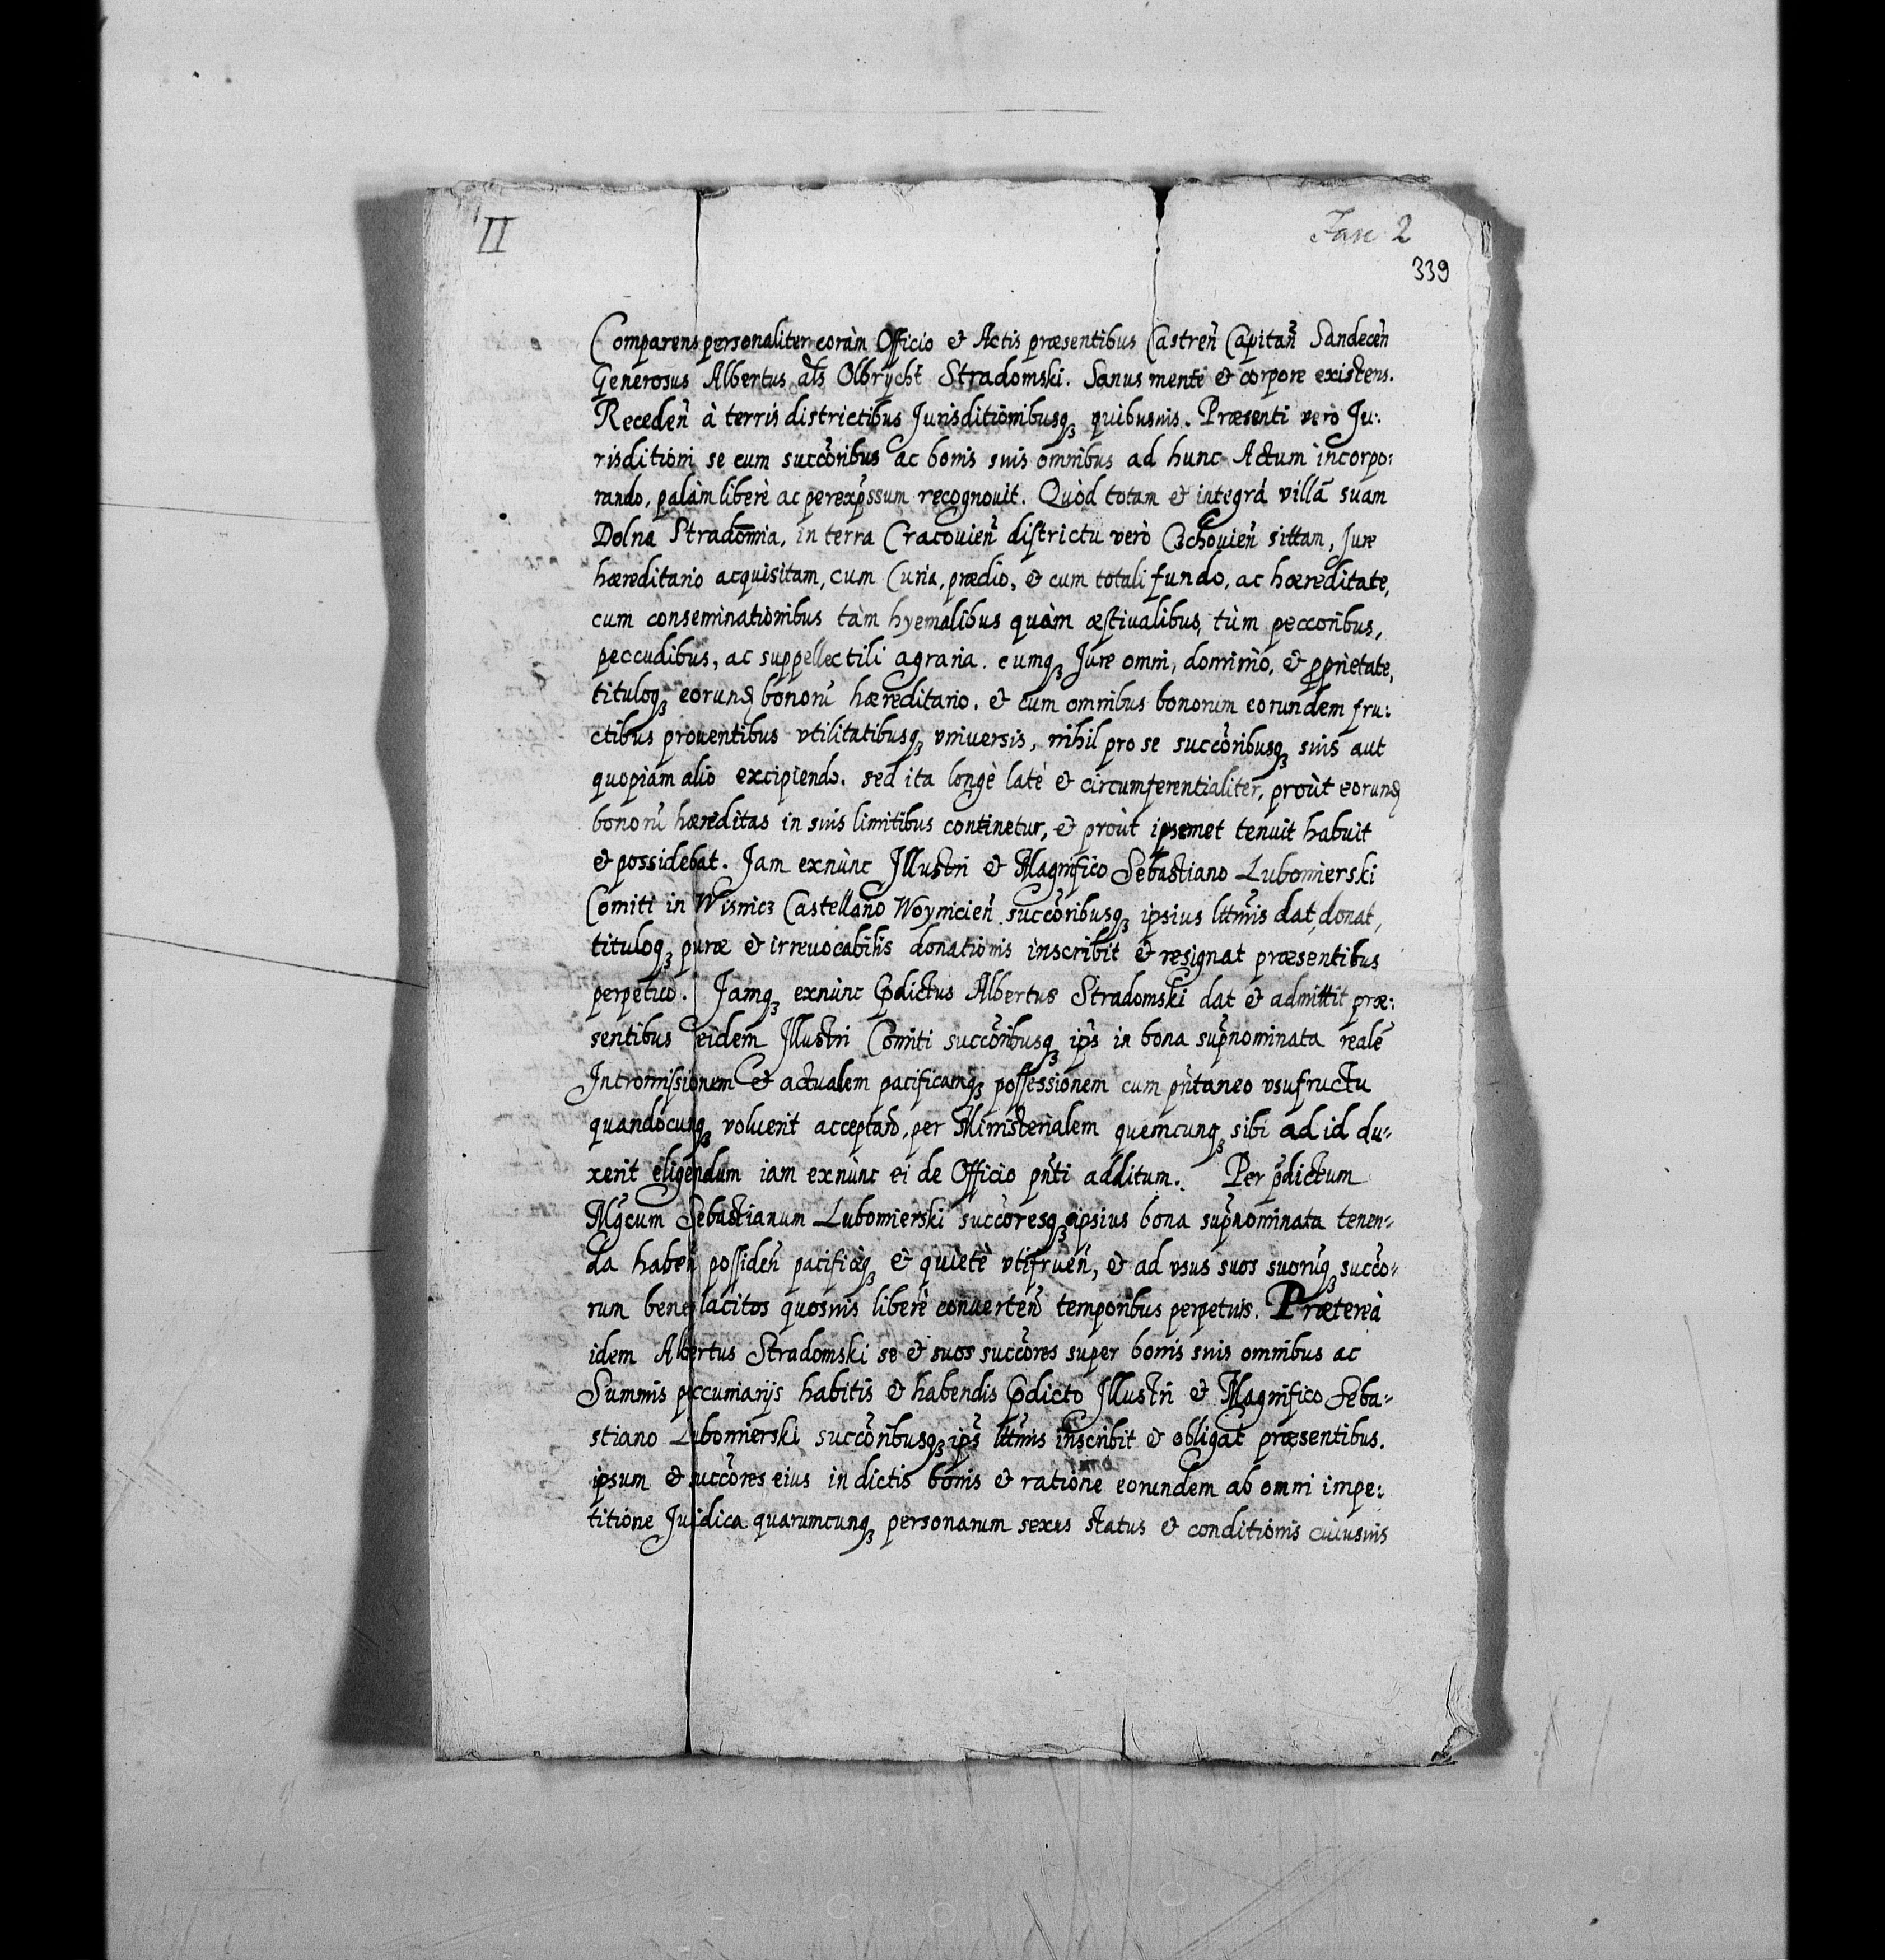 II
Fasc 2
339
Comparens personaliter coràm Officio & Actis præsentibus Castreñ Capitañ Sandeceñ
Generosus Albertus als Olbrycht Stradomski. Sanus mente & corpore existens.
Recedeñ à terris districtibus Jurisditionibusq₃ quibusuis. Præsenti vero Ju:
risditioni se cum succoribus ac bonis suis omnibus ad hunc Actum incorpo:
rando, palàm liberè ac perexpssum recognouit. Quòd totam & integrā villā suam
Dolna Stradomia, in terra Cracouieñ districtu verò Czchouieñ sittam, Jure
hæreditario acquisitam, cum Curia, prædio, & cum totali fundo, ac hæreditate,
cum conseminationibus tàm hyemalibus quàm æstiualibus, tùm peccoribus,
peccudibus, ac suppellectili agraria. cumq₃ Jure omni, dominio, & ꝓprietate,
tituloq₃ eorunđ bonorū hæreditario. & cum omnibus bonorum eorundem fru:
ctibus prouentibus vtilitatibusq₃ vniuersis, nihil pro se succoribusq₃ suis aut
quopiam alio excipiendo. sed ita longè latè & circumferentialiter, proùt eorunđ
bonorū hæreditas in suis limitibus continetur, & proùt ipsemet tenuit habuit
& possidebat. Jam exnùnc Jllustri & Magnifico Sebastiano Lubomierski
Comiti in Wisnicz Castellano Woynicieñ succoribusq₃ ipsius lttmis dat, donat,
tituloq₃ puræ & irreuocabilis donationis inscribit & resignat præsentibus
perpetuò. Jamq₃ exnùnc Pdictus Albertus Stradomski dat & admittit præ:
sentibus eidem Jllustri Comiti succoribusq₃ ips in bona supnominata realē
Intromissionem & actualem pacificamq₃ possessionem cum pñtaneo vsufructu
quandocunq₃ voluerit acceptañ, per Ministerialem quemcunq₃ sibi ad id du:
xerit eligendum iam exnùnc ei de Officio pñti additum. Per pdictum
Mgcum Sebastianum Lubomierski succoresq₃ ipsius bona supnominata tenen:
da habeñ possideñ pacificèq₃ & quietè vtifrueñ, & ad vsus suos suorūq₃ succo:
rum beneplacitos quosuis liberè conuerteñ temporibus perpetuis. Prætereà
idem Albertus Stradomski se & suos succores super bonis suis omnibus ac
Summis peccuniarijs habitis & habendis Pdicto Jllustri & Magnifico Seba:
stiano Lubomierski succoribusq₃ ips lttmis inscribit & obligat præsentibus.
ipsum & succores eius in dictis bonis & ratione eorundem ab omni impe:
titione Juridica quarumcunq₃ personarum sexus status & conditionis cuiusuis